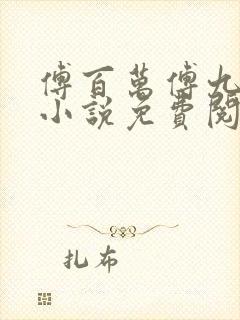 傅百萬傅九
小說免費閱
扎布